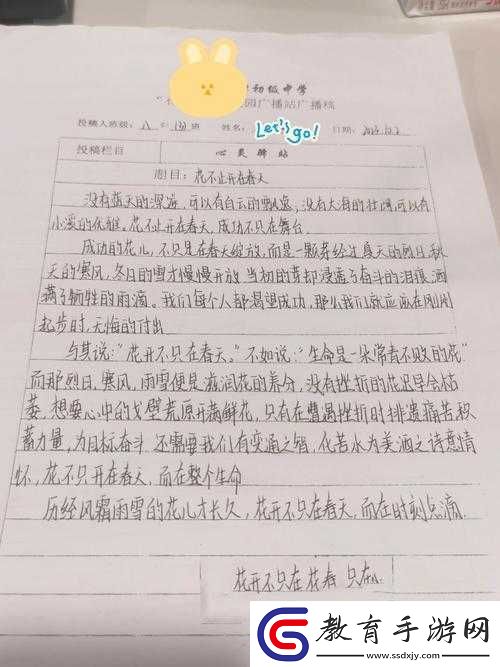 初级中学
园广播站广播稿
投稿人班级：八年 班 姓名： Let's go! 日期：
投稿栏目 心灵驿站
题目：花不止开在春天
没有蓝天的深邃，可以有白云的飘逸；没有大海的壮阔，可以有
小溪的优雅。花不止开在春天，成功不只在舞台。
成功的花儿，不只是在春天绽放，而是一颗芽经过夏天的烈日，秋
天的寒风，冬日的雪才慢慢开放。当初的芽却浸透了奋斗的泪痕，洒
满了牺牲的雨滴。我们每个人都渴望成功，那么我们就应该在刚刚
起步时，无悔的付出
与其说：“花开不只在春天。”不如说：“生命是一朵常春不败的花”
而那烈日、寒风，雨雪便是滋润花的养分，没有挫折的花迟早会枯
萎。想要心中的戈壁荒原开满鲜花，只有在遭遇挫折时排遣痛苦积
蓄力量，为目标奋斗。还需要我们有变通之智，化苦水为美酒之诗意情
怀，花不只开在春天，而在整个生命
历经风霜雨雪的花儿才长久，花开不只在春天，而在时刻点滴。
花开不只在花春 只在
教育手游网
www.ssdxjy.com